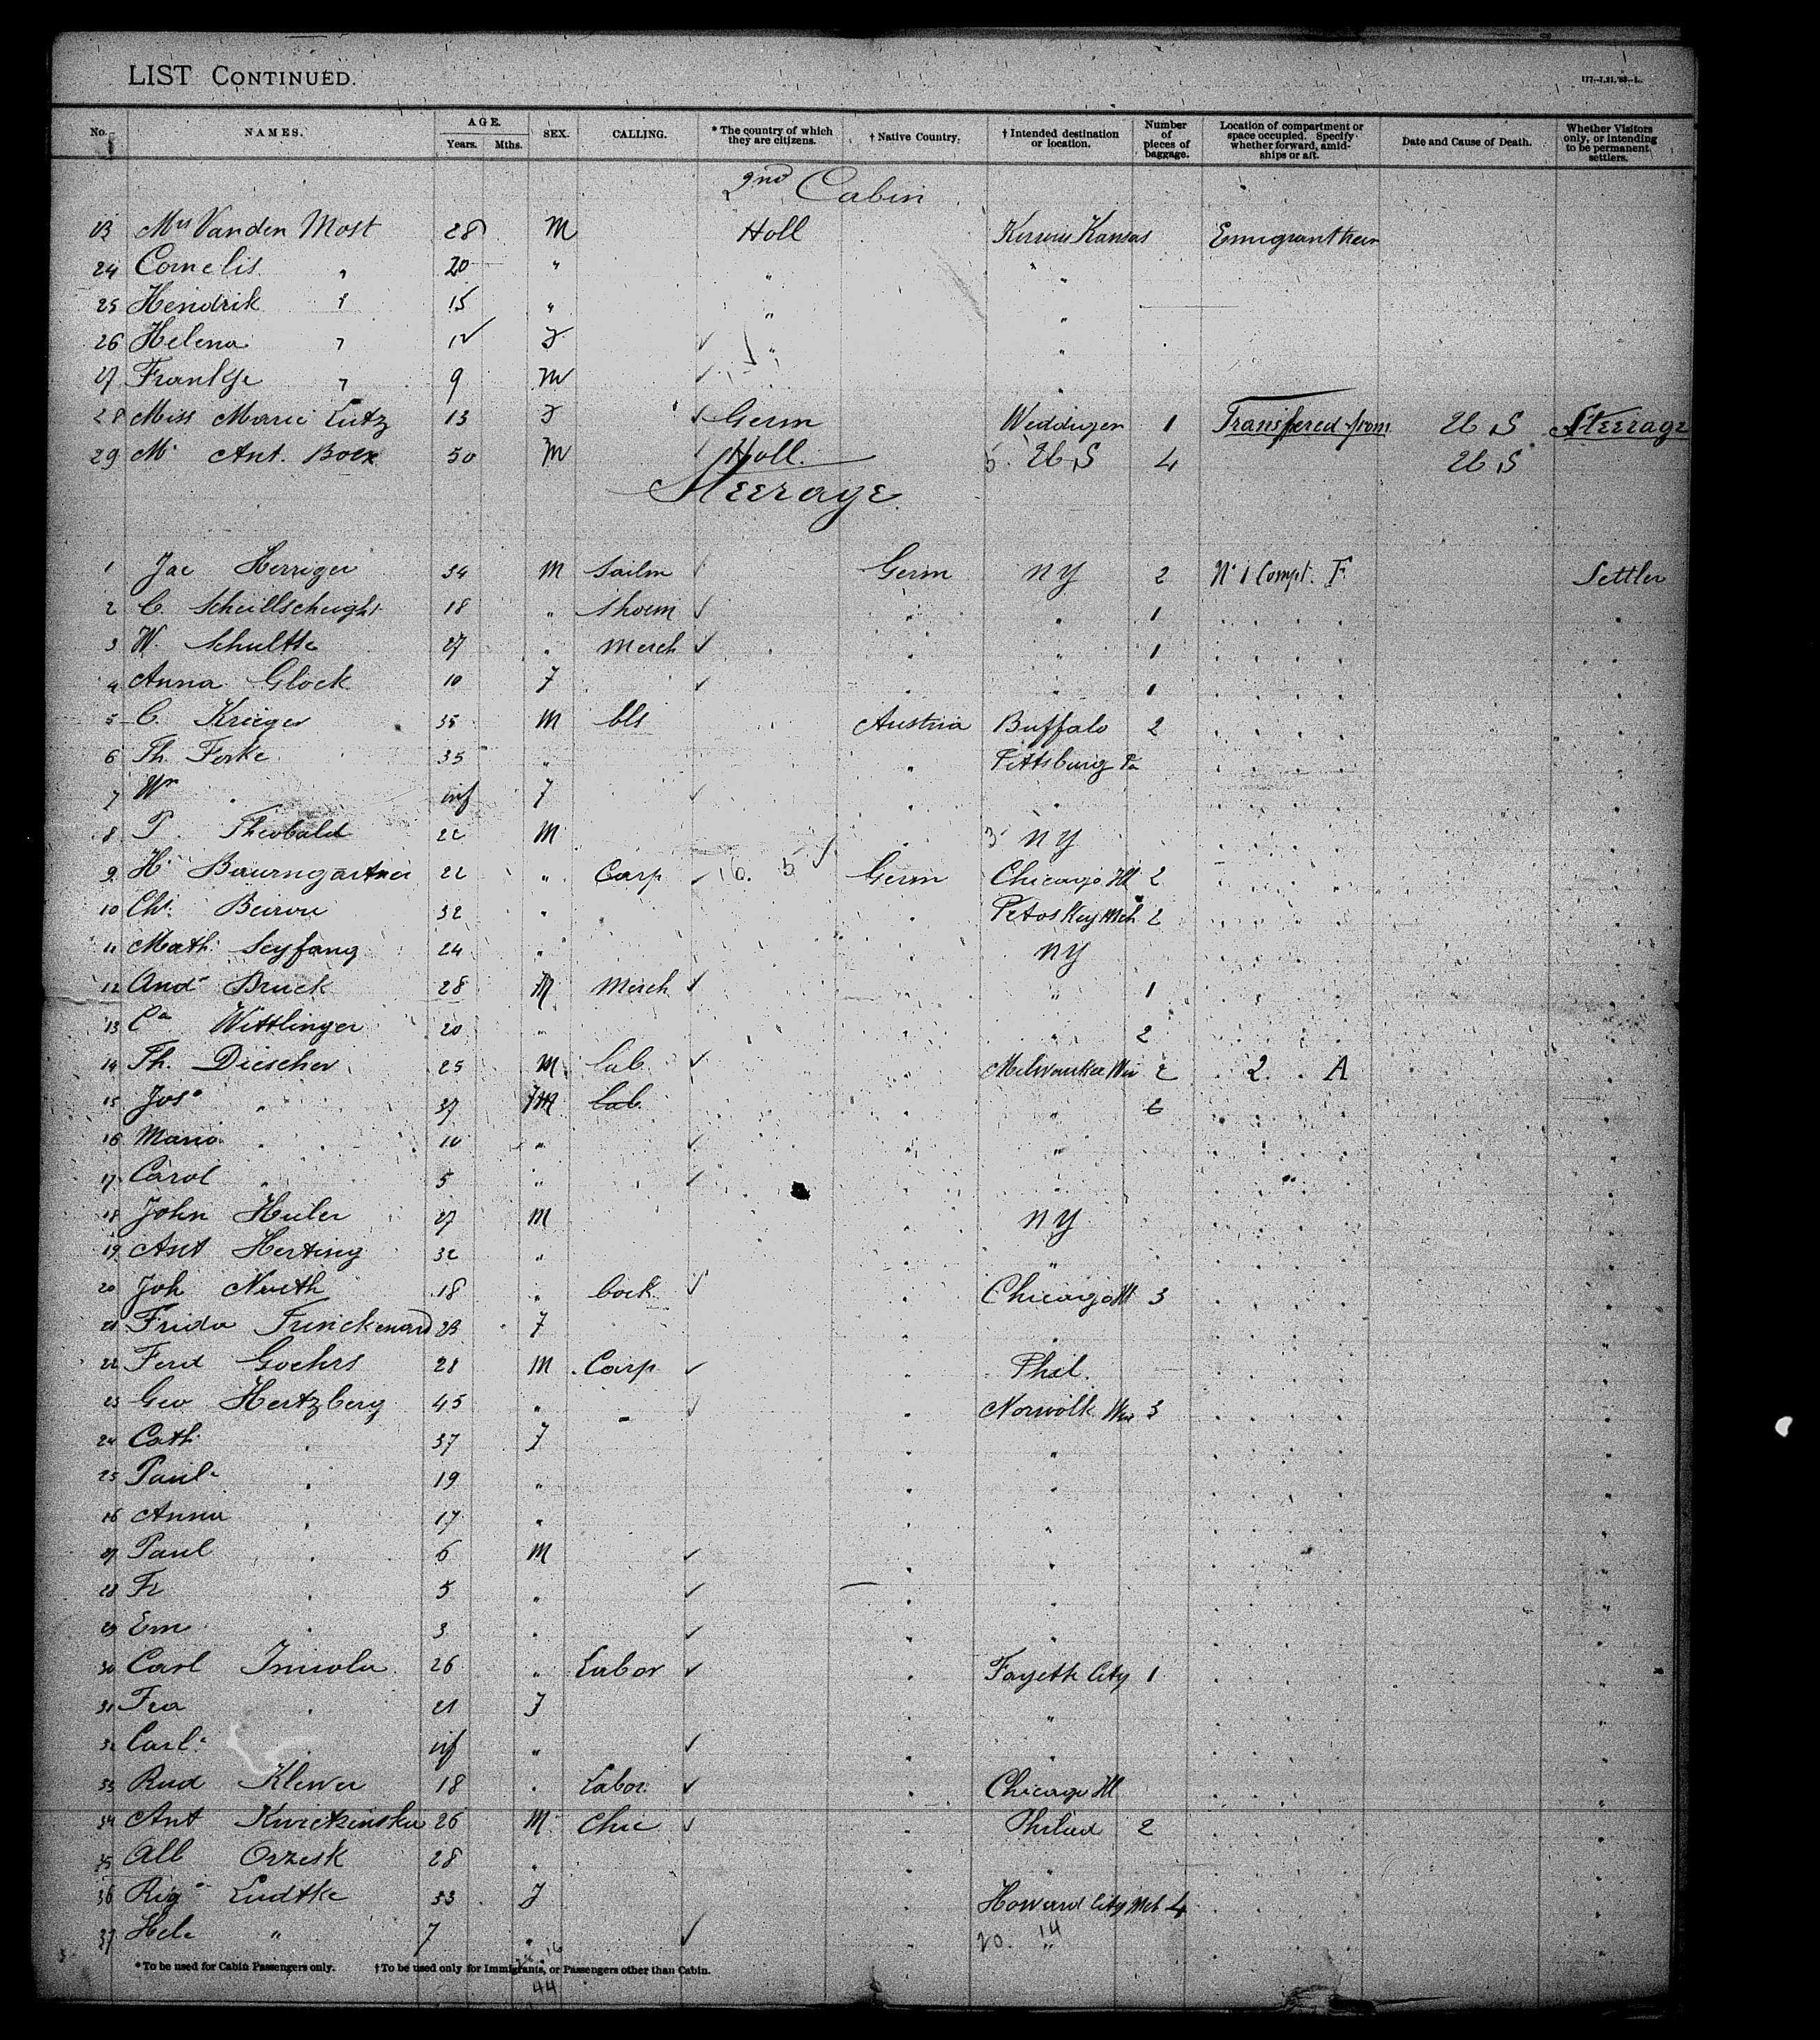 LIST CONTINUED.
177-7,21,'93-L.
No. NAMES. AGE. Years. Mths. SEX. CALLING. * The country of which they are citizens. † Native Country. † Intended destination or location. Number of pieces of baggage. Location of compartment or space occupied. Specify whether forward, amidships or aft. Date and Cause of Death. Whether Visitors only, or intending to be permanent settlers.
2nd Cabin
23 Vanden Most 28 M Holl Kansas
24 Cornelis " 20 " " " "
25 Hendrik " 15 " " "
26 Helena " 12 F " "
27 " 9 M "
28 Miss Marie Lutz 13 F Germ 1 Transfered from U S Steerage
29 Mr Ant. 50 M Holl. U S 4 U S
Steerage
1 Jac 34 M Germ NY 2 No 1 Compt. F Settler
2 C. 18 " shoem " " 1
3 W. Schultte 27 " Merch " " 1
4 Anna Glock 10 F " " 1
5 C. Krieger 35 M Austria Buffalo 2
6 Th. Forke 35 " " Pittsburg Pa
7 inf F " "
8 P. Theobald 22 M " NY
9 H. Baumgartner 22 " Carp Germ Chicago Ill 2
10 Chr. 32 " " Petoskey Mch 2
11 Math. Seyfang 24 " NY
12 And. Bruck 28 M Merch " 1
13 Wittlinger 20 " " 2
14 Th. Diescher 25 M Lab. Milwaukee Wis 2 2. A
15 Jos. " 37 F Lab. " 6
16 Maria " 10 " "
17 Carol " 5 " "
18 John Huler 27 M NY
19 Ant Herting 32 " "
20 Joh 18 " Chicago Ill 3
21 Frida 23 F "
22 Ferd Goehrs 28 M Carp Phil.
23 Geo Hertzberg 45 " Wis 3
24 Cath. " 37 F "
25 Paul. " 19 " "
26 Anna " 17 " "
27 Paul " 6 M "
28 Fr " 5 " "
29 Em " 3 " "
30 Carl 26 " Labor Fayette City 1
31 Fra " 21 F "
32 Carl. " inf " "
33 Rud Klewer 18 " Labor. Chicago Ill
34 Ant 26 M Philad 2
35 Alb Orzesk 28 " "
36 Ludtke 33 F Howard City Mch 4
37 Hele " 7 " "
20. 14
* To be used for Cabin Passengers only. † To be used only for Immigrants, or Passengers other than Cabin.
44